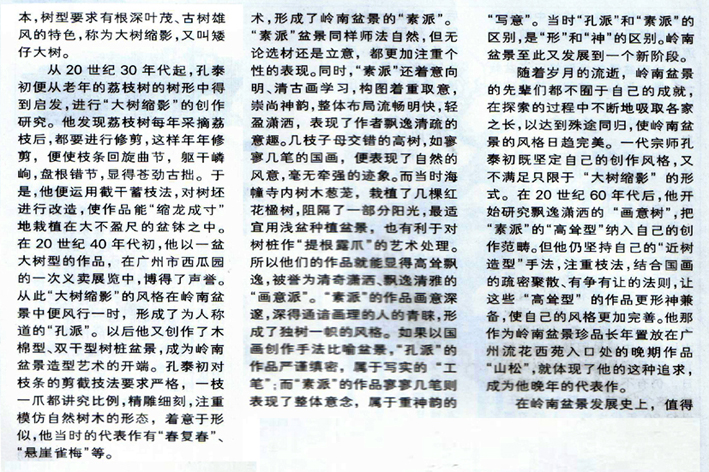 本,树型要求有根深叶茂、古树雄
风的特色,称为大树缩影,又叫矮
仔大树。
从20世纪30年代起,孔泰
初便从老年的荔枝树的树形中得
到启发,进行“大树缩影”的创作
研究。他发现荔枝树每年采摘荔
枝后,都要进行修剪,这样年年修
剪,便使枝条回旋曲节,躯干嶙
峋,盘根错节,显得苍劲古拙。于
是,他便运用截干蓄枝法,对树坯
进行改造,使作品能“缩龙成寸”
地栽植在大不盈尺的盆钵之中。
在20世纪40年代初,他以一盆
大树型的作品,在广州市西瓜园
的一次义卖展览中,博得了声誉。
从此“大树缩影”的风格在岭南盆
景中便风行一时,形成了为人称
道的“孔派”。以后他又创作了木
棉型、双干型树桩盆景,成为岭南
盆景造型艺术的开端。孔泰初对
枝条的剪截技法要求严格,一枝
一爪都讲究比例,精雕细刻,注重
模仿自然树木的形态,着意于形
似,他当时的代表作有“春复春”、
“悬崖雀梅”等。
术,形成了岭南盆景的“素派”。
“素派”盆景同样师法自然,但无
论选材还是立意,都更加注重个
性的表现。同时,“素派”还着意向
明、清古画学习,构图着重取意,
崇尚神韵,整体布局流畅明快,轻
盈潇洒,表现了作者飘逸清疏的
意趣。几枝子母交错的高树,如寥
寥几笔的国画,便表现了自然的
风意,毫无牵强的迹象。而当时海
幢寺内树木葱茏,栽植了几棵红
花楹树,阻隔了一部分阳光,最适
宜用浅盆种植盆景,也有利于对
树桩作“提根露爪”的艺术处理。
所以他们的作品就能显得高耸飘
逸,被誉为清奇潇洒、飘逸清雅的
“画意派”。“素派”的作品画意深
邃,深得通谙画理的人的青睐,形
成了独树一帜的风格。如果以国
画创作手法比喻盆景,“孔派”的
作品严谨缜密,属于写实的“工
笔”;而“素派”的作品寥寥几笔则
表现了整体意念,属于重神韵的
“写意”。当时“孔派”和“素派”的
区别,是“形”和“神”的区别。岭南
盆景至此又发展到一个新阶段。
随着岁月的流逝,岭南盆景
的先辈们都不囿于自己的成就,
在探索的过程中不断地吸取各家
之长,以达到殊途同归,使岭南盆
景的风格日趋完美。一代宗师孔
泰初既坚定自己的创作风格,又
不满足只限于“大树缩影”的形
式。在20世纪60年代后,他开
始研究飘逸潇洒的“画意树”,把
“素派”的“高耸型”纳入自己的创
作范畴。但他仍坚持自己的“近树
造型”手法,注重枝法,结合国画
的疏密聚散、有争有让的法则,让
这些“高耸型”的作品更形神兼
备,使自己的风格更加完善。他那
作为岭南盆景珍品长年置放在广
州流花西苑入口处的晚期作品
“山松”,就体现了他的这种追求,
成为他晚年的代表作。
在岭南盆景发展史上,值得